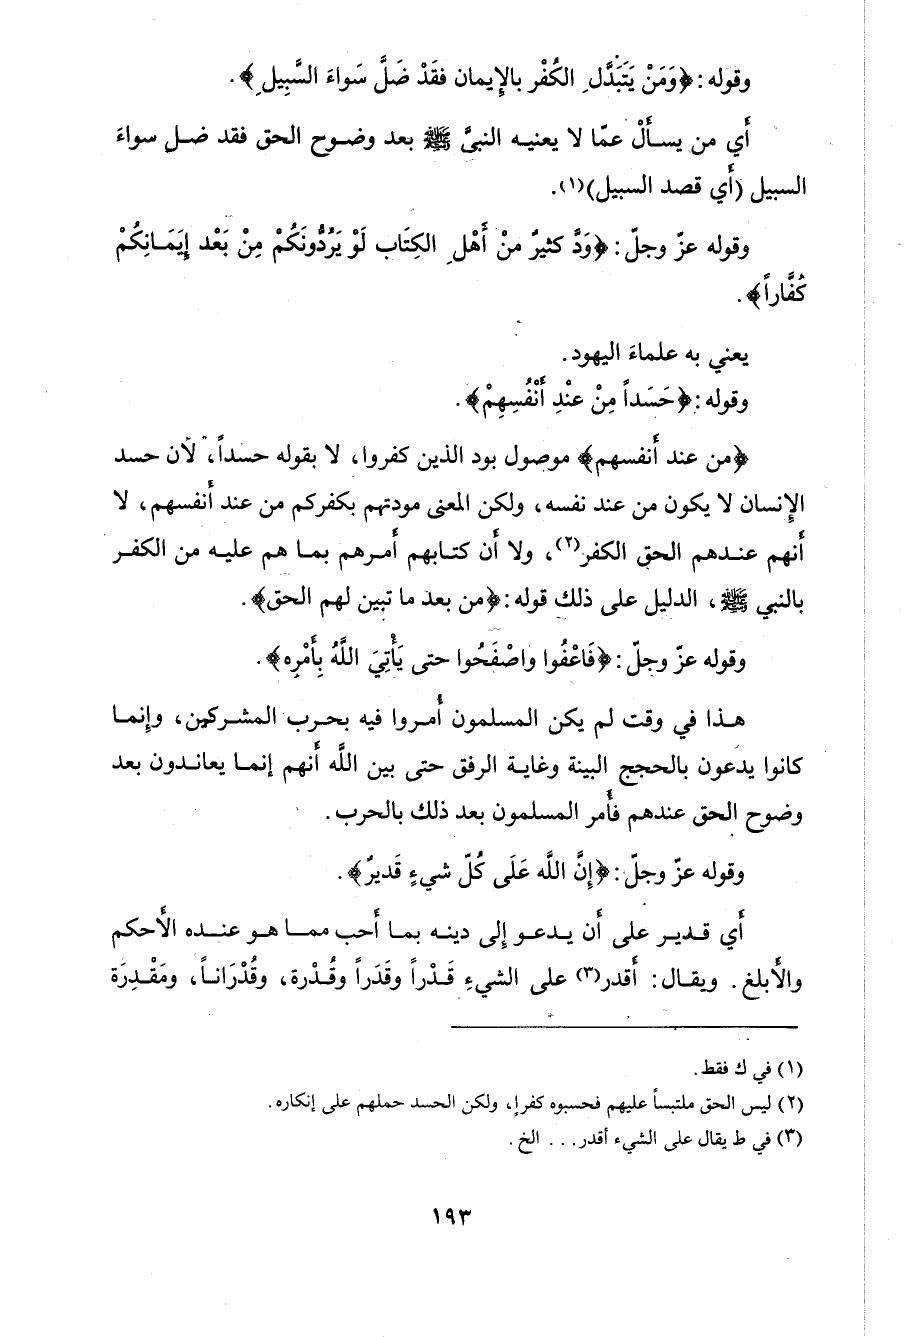 وقوله: ﴿وَمَنْ يَتَبَدَّلِ الكُفْر بالإِيمان فقَدْ ضَلَّ سَواءَ السَّبِيلِ﴾.
أَي من يسأَلْ عمّا لا يعنيه النبيَّ ﷺ بعد وضوح الحق فقد ضل سواءَ
السبيل (أَي قصد السبيل)(١).
وقوله عزّ وجلّ: ﴿وَدَّ كثيرٌ منْ أَهْلِ الكِتَاب لَوْ يَرُدُّونَكُمْ مِنْ بَعْد إِيَمَانِكُمْ
كُفَّاراً﴾.
يعني به علماءَ اليهود.
وقوله: ﴿حَسَداً مِنْ عنْدِ أَنْفُسِهِمْ﴾.
﴿من عند أَنفسهم﴾ موصول بود الذين كفروا، لا بقوله حسداً، لأن حسد
الإِنسان لا يكون من عند نفسه، ولكن المعنى مودتهم بكفركم من عند أَنفسهم، لا
أَنهم عندهم الحق الكفر(٢)، ولا أَن كتابهم أَمرهم بما هم عليه من الكفر
بالنبي ﷺ، الدليل على ذلك قوله: ﴿من بعد ما تبين لهم الحق﴾.
وقوله عزّ وجلّ: ﴿فَاعْفُوا واصْفَحُوا حتى يَأْتِيَ اللَّهُ بِأَمْرِه﴾.
هذا في وقت لم يكن المسلمون أُمروا فيه بحرب المشركين، وإنما
كانوا يدعون بالحجج البينة وغاية الرفق حتى بين اللَّه أَنهم إنما يعاندون بعد
وضوح الحق عندهم فأُمر المسلمون بعد ذلك بالحرب.
وقوله عزّ وجلّ: ﴿إِنَّ اللَّه عَلَى كُلّ شيءٍ قَديرٌ﴾.
أَي قدير على أَن يدعو إلى دينه بما أَحب مما هو عنده الأَحكم
والأَبلغ. ويقال: أَقدر(٣) على الشيءِ قَدْراً وقَدَراً وقُدْرة، وقُدْرَاناً، ومَقْدِرَة
(١) في ك فقط.
(٢) ليس الحق ملتبساً عليهم فحسبوه كفرا، ولكن الحسد حملهم على إنكاره.
(٣) في ط يقال على الشيء أقدر... الخ.
١٩٣